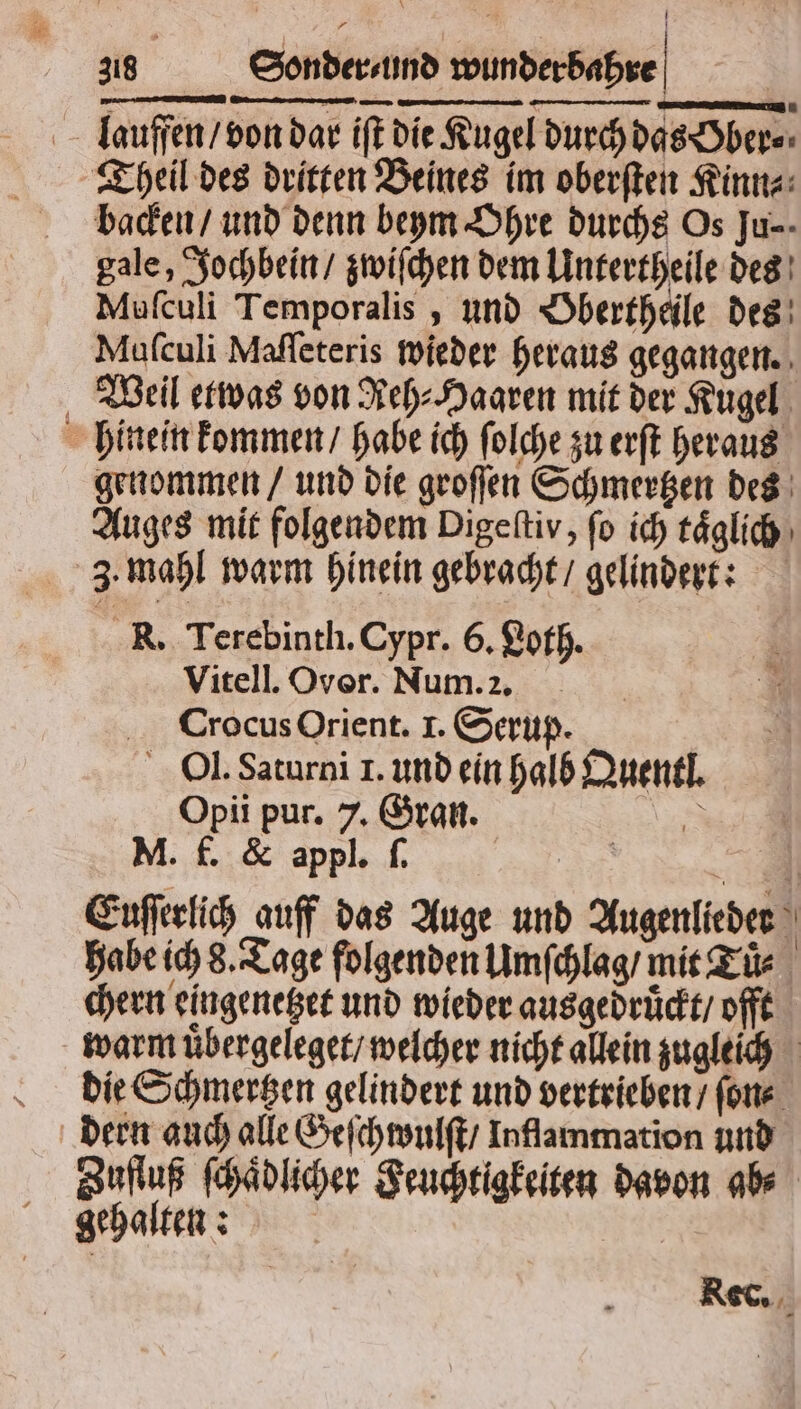 318 Sonder⸗und wunderbahre
lauffen / von dar iſt die Kugel durch das Ober⸗
Theil des dritten Beines im oberſten Kinn⸗
backen / und denn beym Ohre durchs Os Ju-
gale, Jochbein / zwiſchen dem Untertheile des
Muſculi Temporalis , und Obertheile des
Muſculi Maſſeteris wieder heraus gegangen.
Weil etwas von Reh⸗Haaren mit der Kugel
hinein kommen / habe ich ſolche zu erſt heraus
genommen / und die groſſen Schmertzen des
Auges mit folgendem Digeſtiv, ſo ich taͤglich
3. mahl warm hinein gebracht / gelindert:
R. Terebinth. Cypr. 6. Loth.
Vitell. Ovor. Num. 2.
Crocus Orient. 1. Scrup.
Ol. Saturni 1. und ein halb Quentl.
Opii pur. 7. Gran.
M. f. & appl. ſ.
Euſſerlich auff das Auge und Augenlieder
habe ich 8. Tage folgenden Umſchlag / mit Tuͤ⸗
chern eingenetzet und wieder ausgedruͤckt / offt
warm uͤbergeleget / welcher nicht allein zugleich
die Schmertzen gelindert und vertrieben / ſon⸗
dern auch alle Geſchwulſt / Inflammation und
Zufluß ſchaͤdlicher Feuchtigkeiten davon ab⸗
gehalten :
Rec.